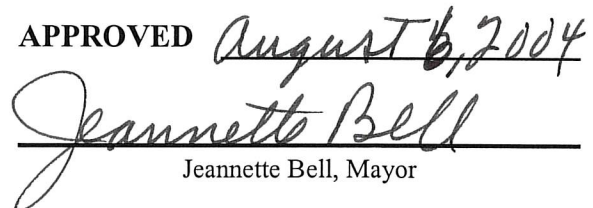 APPROVED August 6, 2004
Jeannette Bell
Jeannette Bell, Mayor